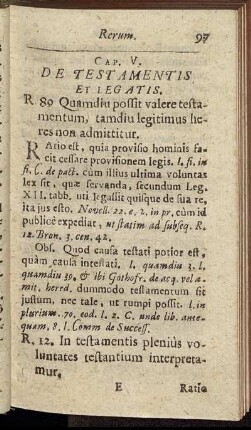 Rerum. 97
CAP. V.
DE TESTAMENTIS
ET LEGATIS.
R. 89 Quamdiu possit valere testa-
mentum, tamdiu legitimus he-
res non admittitur.
RAtio est, quia provisio hominis fa-
cit cessare provisionem legis. l. fi. in
fi. C. de pact. cum illius ultima voluntas
lex sit, quæ servanda, secundum Leg.
XII. tabb. uti legassit quisque de sua re,
ita jus esto. Novell. 22. c. 2. in pr. cùm id
publicè expediat, ut statim ad subseq. R.
12. Bron. 3. cen. 42.
Obs. Quod causa testati potior est,
quàm causa intestati. l. quamdiu 3. l.
quamdiu 39. & ibi Gothofr. de acq. vel a-
mit. hered. dummodo testamentum sit
justum, nec tale, ut rumpi possit. l. in
plurium. 70. eod. l. 2. C. unde lib. ante-
quam, 8. l. Comm de Success.
R. 12. In testamentis plenius vo-
luntates testantium interpreta-
mur.
E Ratio